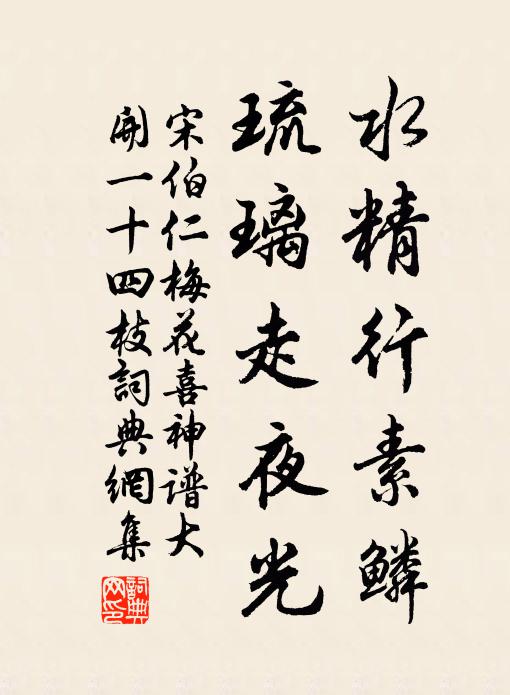 水精行素鱗
琉璃走夜光
宋伯仁梅花喜神谱大
開一十四枝詞典網集
詞典網印